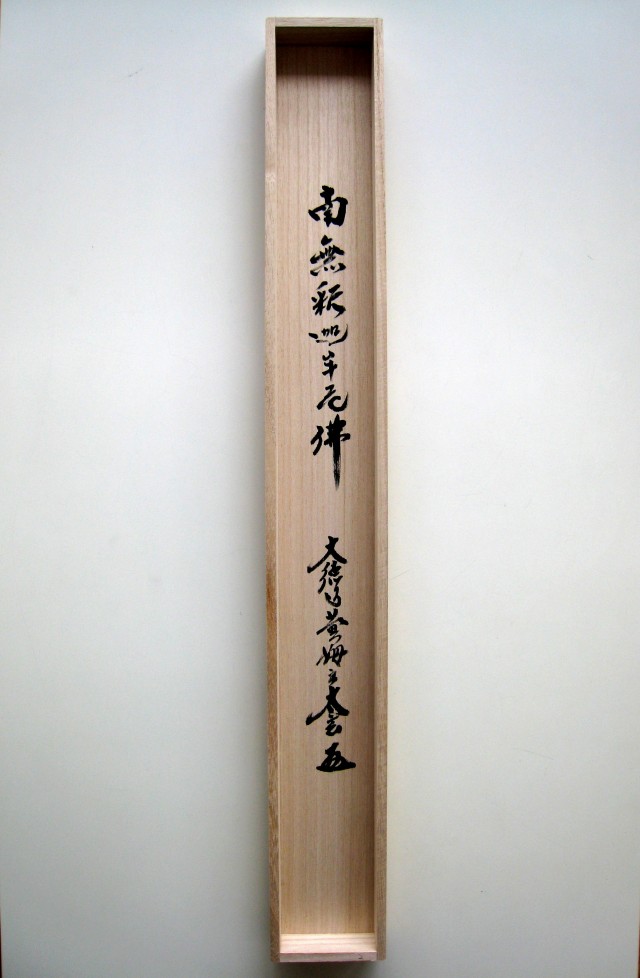 南無釈迦牟尼佛
大徳寺黄梅 太玄